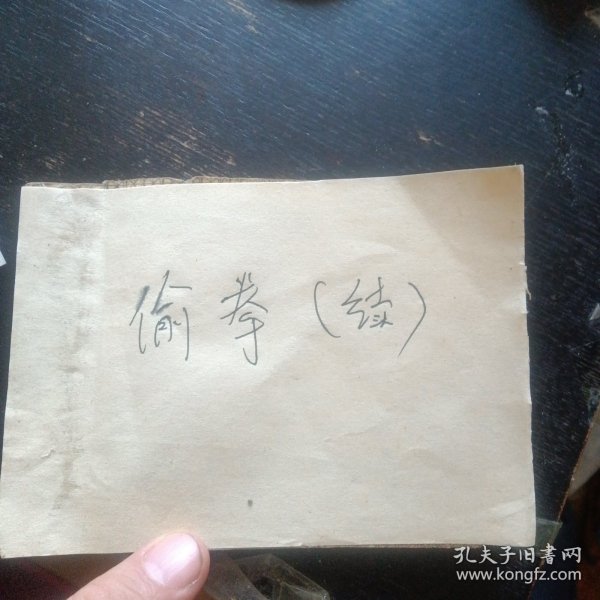 偷拳(续)
孔夫子旧書网
www.kongfz.com